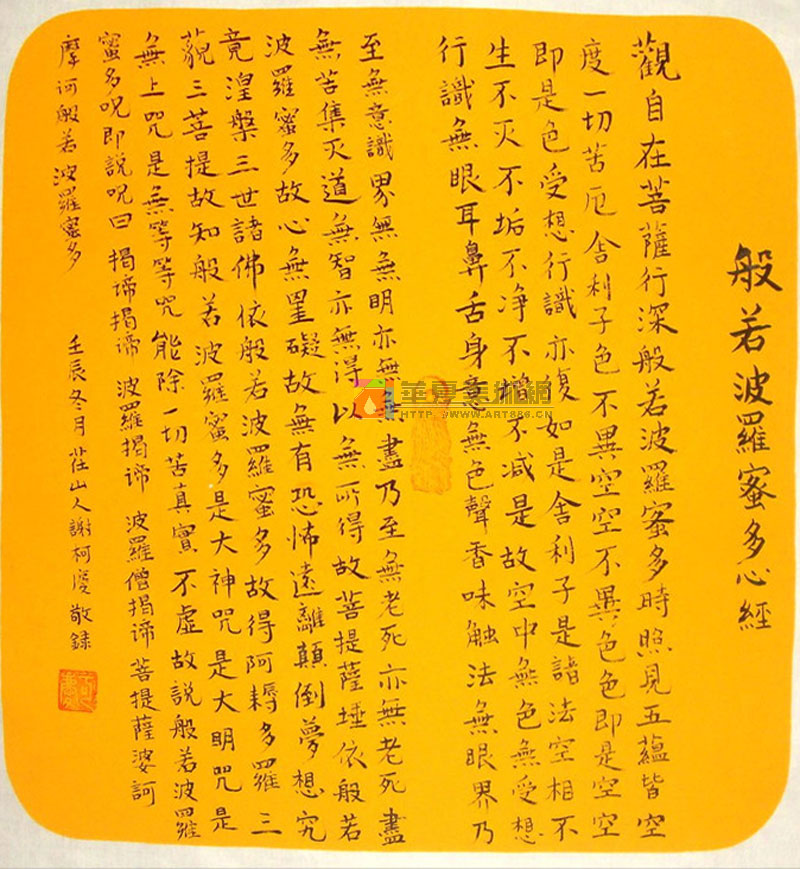 般若波羅蜜多心經
觀自在菩薩行深般若波羅蜜多時照見五蘊皆空
度一切苦厄舍利子色不異空空不異色色即是空空
即是色受想行識亦復如是舍利子是諸法空相不
生不灭不垢不净不增不减是故空中無色無受想
行識無眼耳鼻舌身意無色聲香味触法無眼界乃
至無意識界無無明亦無無盡乃至無老死亦無老死盡
無苦集灭道無智亦無得以無所得故菩提薩埵依般若
波羅蜜多故心無罣礙故無有恐怖遠離顛倒夢想究
竟涅槃三世諸佛依般若波羅蜜多故得阿耨多羅三
藐三菩提故知般若波羅蜜多是大神咒是大明咒是
無上咒是無等等咒能除一切苦真實不虛故説般若波羅
蜜多呪即説呪曰 揭諦揭諦 波羅揭諦 波羅僧揭諦 菩提薩婆訶
摩訶般若波羅蜜多
壬辰冬月荘山人謝柯 敬録
華夏美術網
HTTP://WWW.ART886.CN